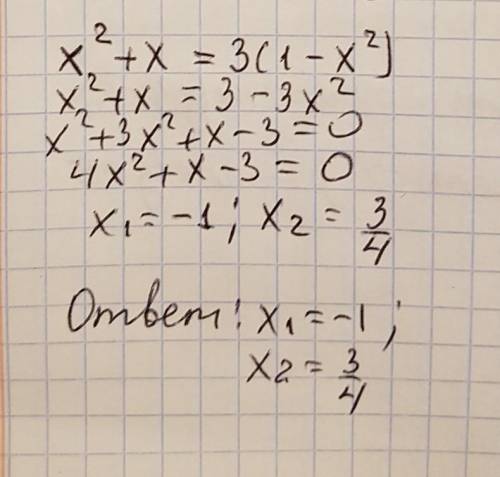 x² + x = 3(1 - x²)
x² + x = 3 - 3x²
x² + 3x² + x - 3 = 0
4x² + x - 3 = 0
x₁ = -1; x₂ = 3/4
Ответ: x₁ = -1;
x₂ = 3/4